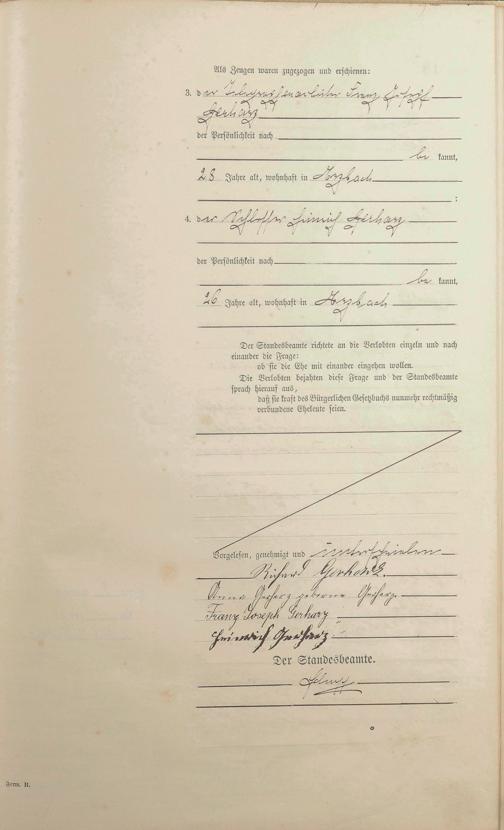 Als Zeugen waren zugezogen und erschienen:
3. der Telegraphenarbeiter Franz Joseph
Gerharz
der Persönlichkeit nach
be kannt,
28 Jahre alt, wohnhaft in
4. der Schlosser Heinrich Gerharz
der Persönlichkeit nach
be kannt,
26 Jahre alt, wohnhaft in
Der Standesbeamte richtete an die Verlobten einzeln und nach
einander die Frage:
ob sie die Ehe mit einander eingehen wollen.
Die Verlobten bejahten diese Frage und der Standesbeamte
sprach hierauf aus,
daß sie kraft des Bürgerlichen Gesetzbuchs nunmehr rechtmäßig
verbundene Eheleute seien.
Vorgelesen, genehmigt und unterschrieben
Richard Gerharz
Anna Gerharz geborene Gerharz
Franz Joseph Gerharz
Heinrich Gerharz
Der Standesbeamte.
Form. B.